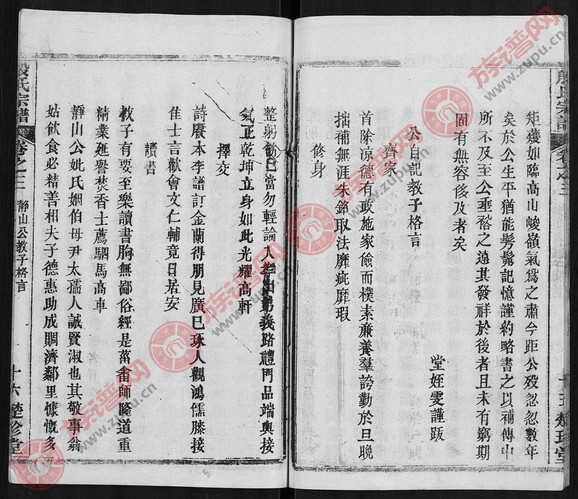 矩蠖如臨高山峻嶺氣爲之肅今距公歿忽忽數年
矣於公生平猶能髣髴記憶謹約略書之以補傳中
所不及至公垂裕之遠其發祥於後者且未有窮期
固有無容侈及者矣
堂姪雯謹跋
公自記教子格言
齊家
首除涼德有政施家儉而樸素兼養羣誇勤於旦脫
拙補無涯朱銘取法靡疵靡瑕
修身
整躬飭己當勿輕論人 義路禮門品端輿接
氣正乾坤立身如此光耀高軒
擇交
詩廢本李譜訂金蘭得朋見廣巳琢人觀鴻儒滕接
佳士言歡會文仁輔竟日居安
讀書
教子有要至樂讀書胸無鄙俗經是菑畬師隆道重
精業延譽焚香士薦駟馬高車
靜山公姚氏姻伯母尹太孺人誠賢淑也其敬事翁
姑飲食必精善相夫子德惠助成賙濟鄰里慷慨多
殷氏宗譜
卷之三
靜山公教子格言
十六
楚珍堂
殷氏宗譜
卷之三
十五
楚珍堂
族谱网
www.zupu.cn